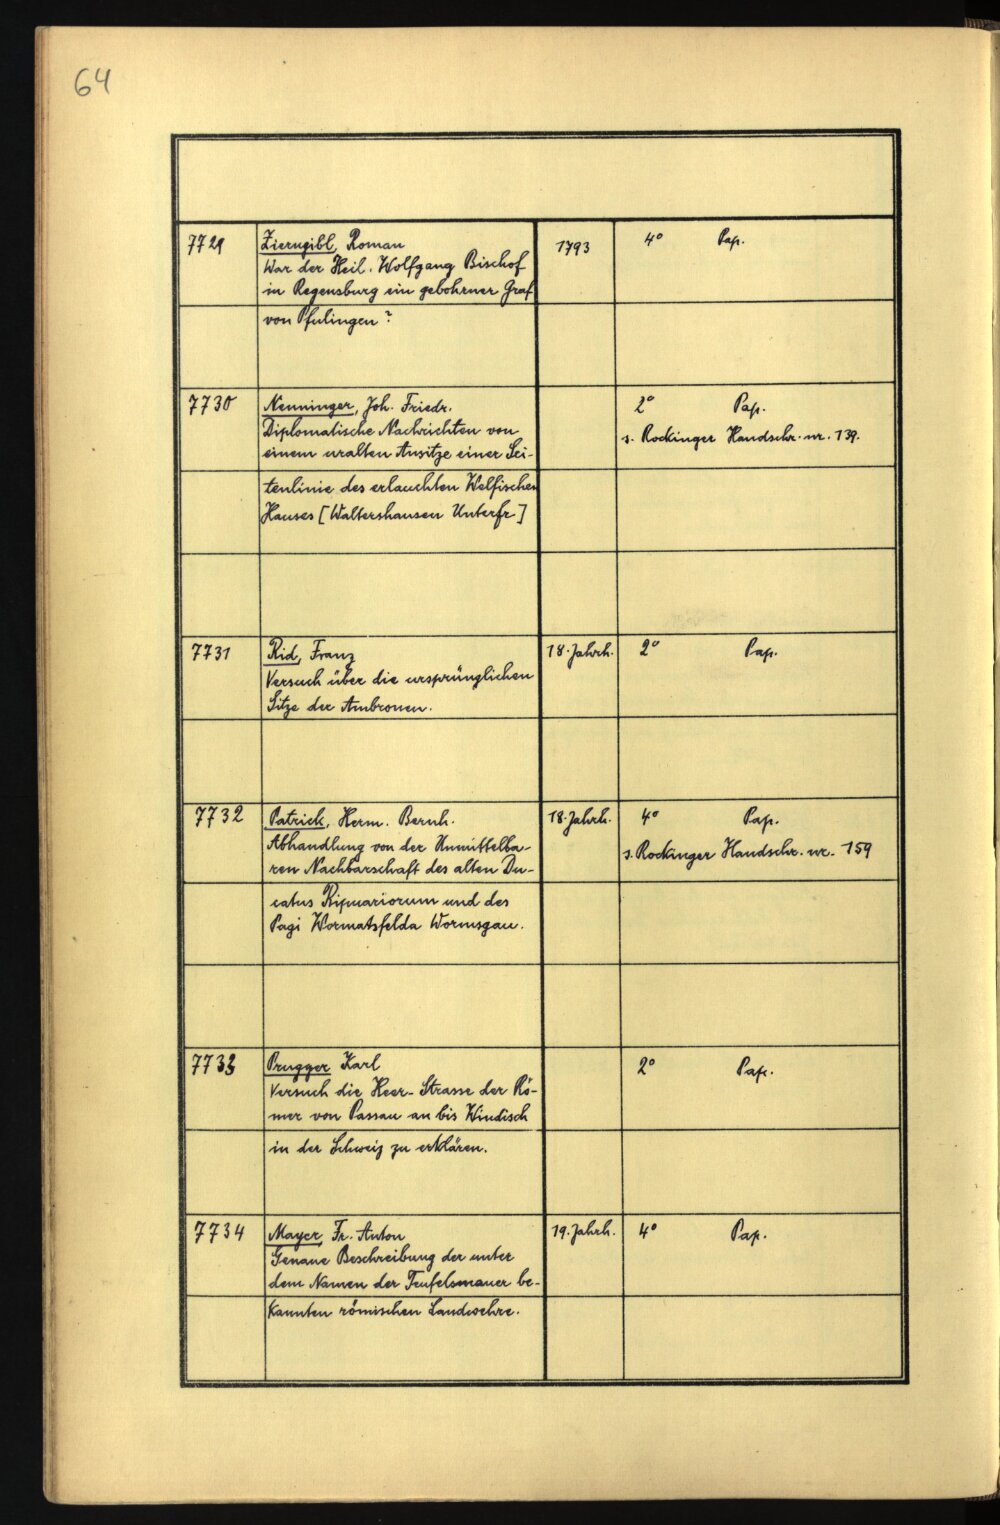 64
7729 Zierngibl, Roman 1793 4° Pap.
War der Heil. Wolfgang Bischof
in Regensburg ein gebohrner Graf
von Pfulingen?
7730 Nenninger, Joh. Friedr. 2° Pap.
Diplomatische Nachrichten von s. Rockinger Handschr. nr. 139.
einem uralten Ansitze einer Sei-
tenlinie des erlauchten Welfischen
Hauses [Waltershausen Unterfr.]
7731 Rid, Franz 18. Jahrh. 2° Pap.
Versuch über die ursprünglichen
Sitze der Ambronen.
7732 Patrick, Herm. Bernh. 18. Jahrh. 4° Pap.
Abhandlung von der Unmittelba- s. Rockinger Handschr. nr. 159
ren Nachbarschaft des alten Du-
catus Ripuariorum und des
Pagi Wormatsfelda Wormsgau.
7733 Prugger Karl 2° Pap.
Versuch die Heer-Strasse der Rö-
mer von Passau an bis Windisch
in der Schweiz zu erklären.
7734 Mayer, Fr. Anton 19. Jahrh. 4° Pap.
Genaue Beschreibung der unter
dem Namen der Teufelsmauer be-
kannten römischen Landwehre.